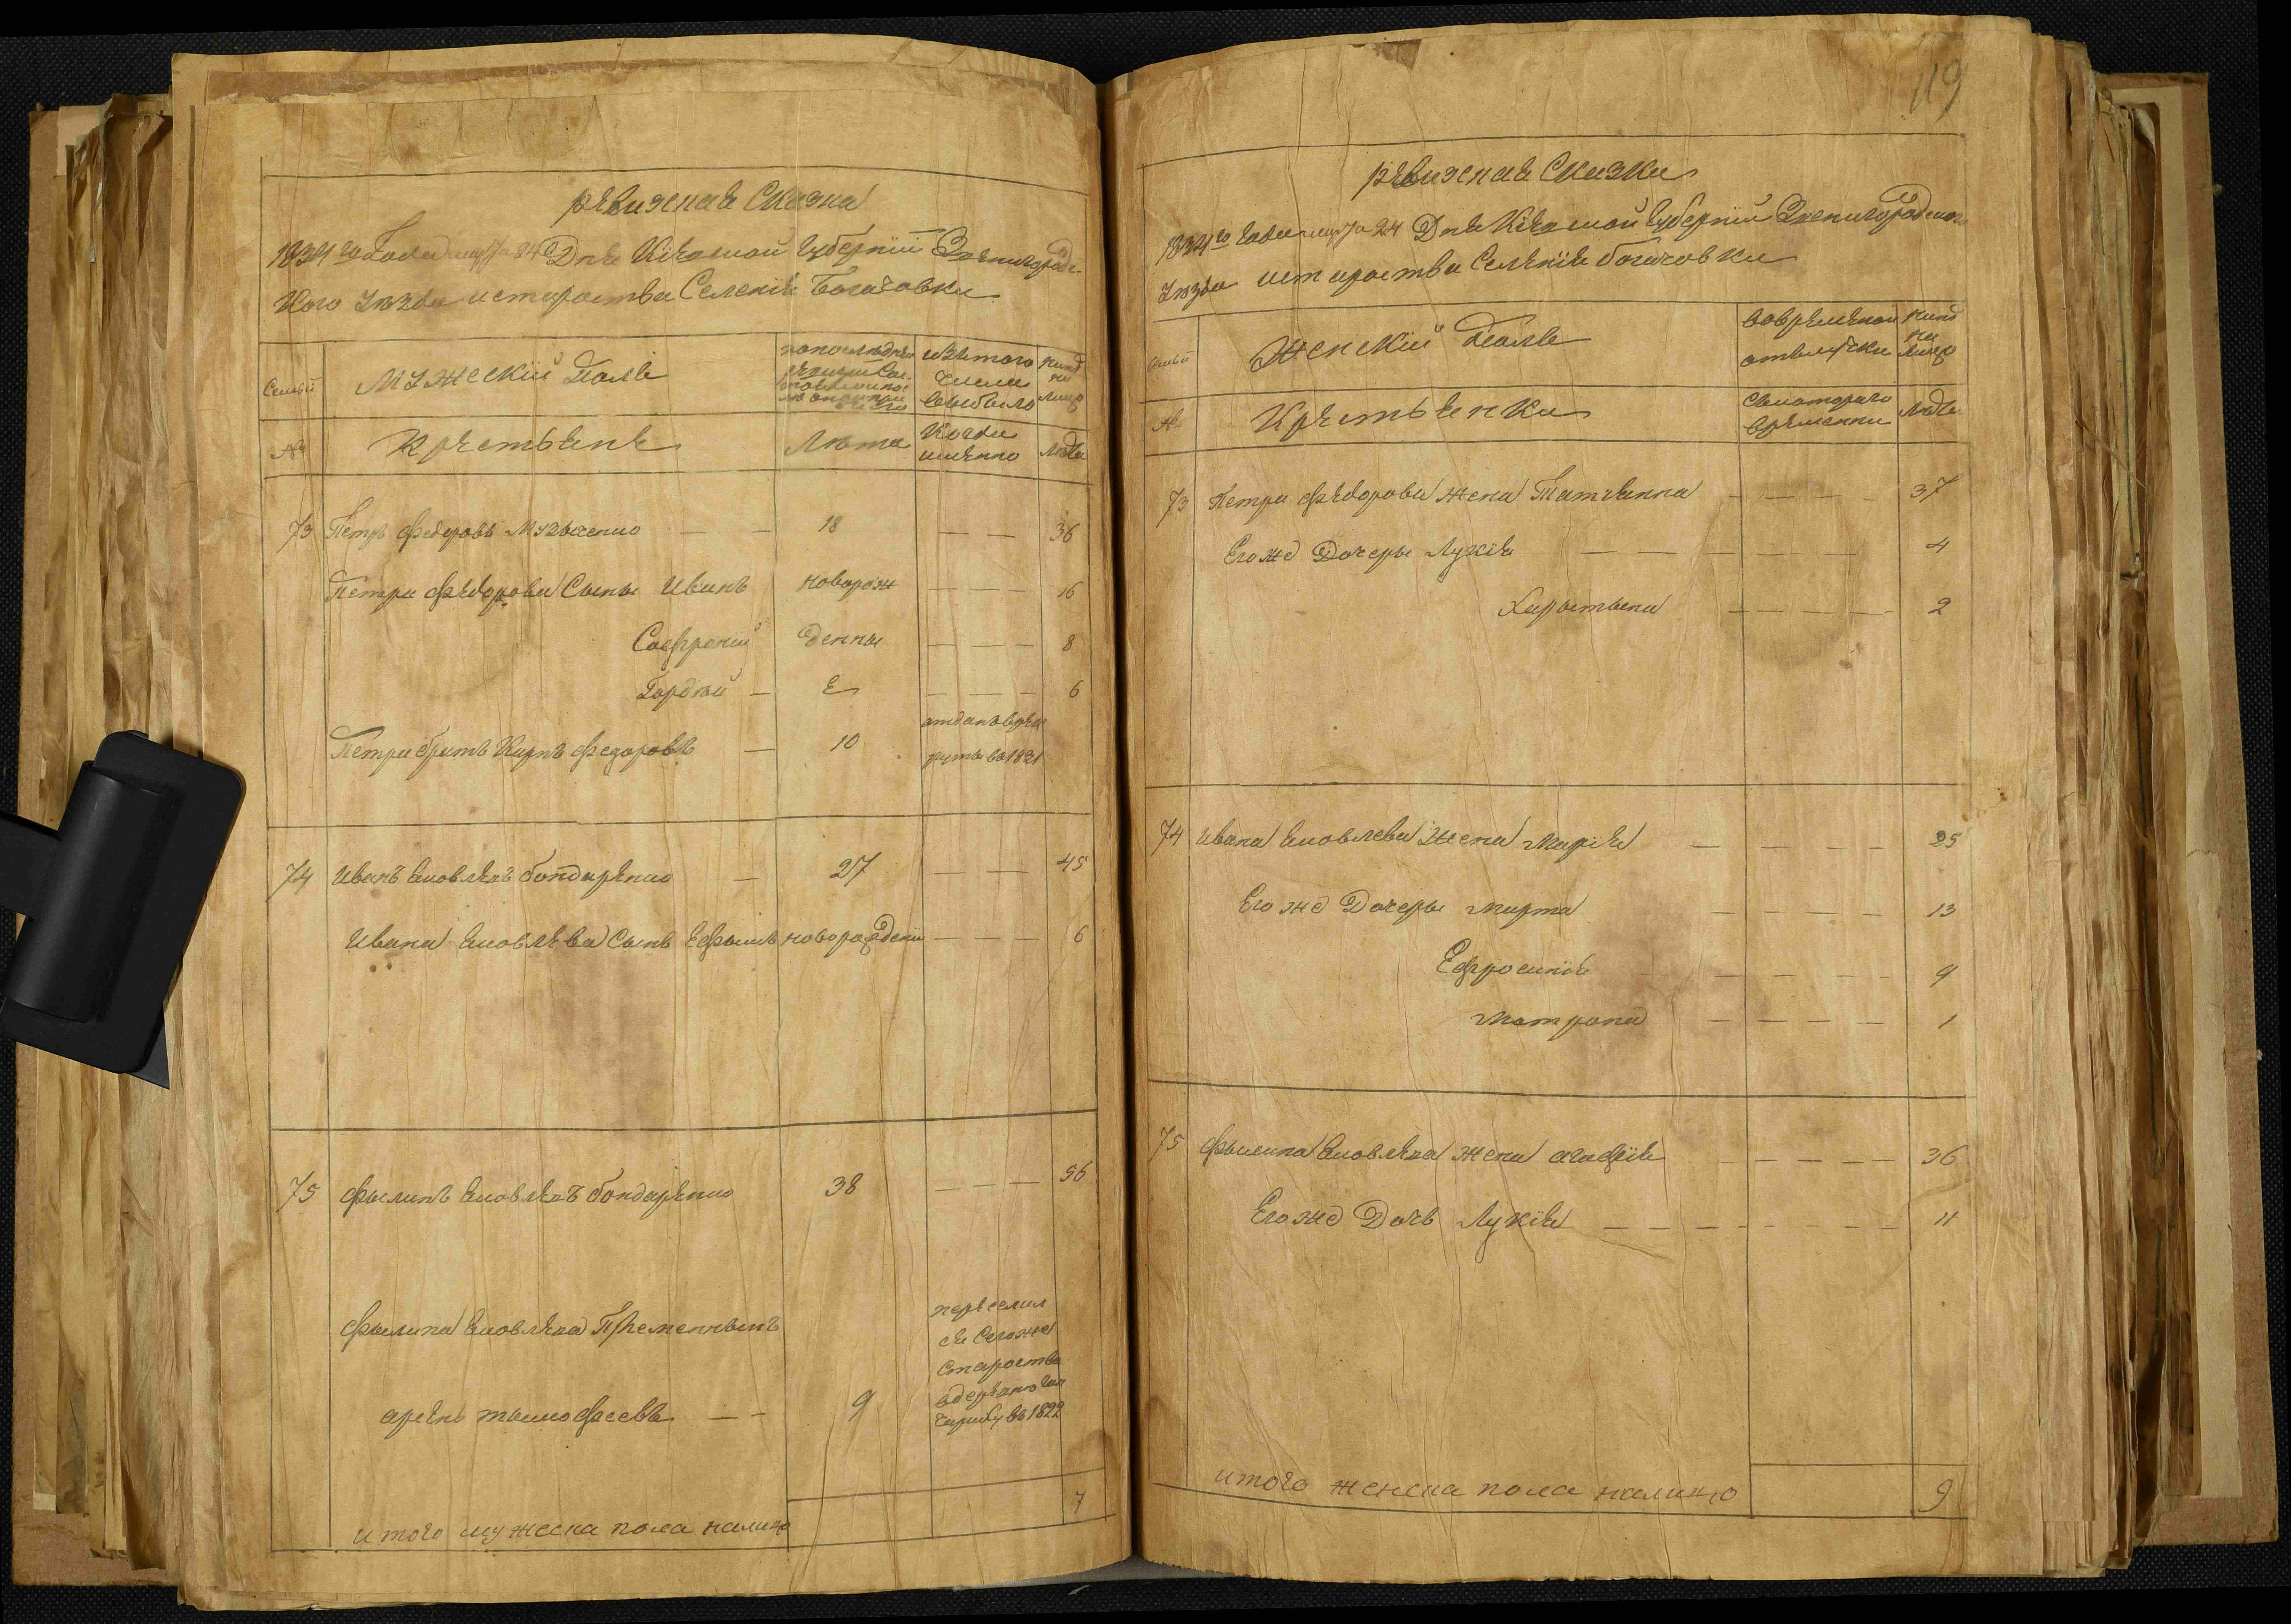 рѣвизская Сказка
1834го Года мар/та 24 Дня Кіевской Губерніи Звенигородс-
кого Уѣзда и староства Селенія Богачовки
Семьи
Мужескій Полъ
изътого числа выбыло
налицо
№
Крестьяне
Лѣта
Когда именно
Лѣта
73 Петръ Федоровъ Музыченко — — 18 — — 36
Петра Федорова Сыны Иванъ новорож — — — 16
Софроній денны — — — 8
Гордѣй — е — — — 6
Петра братъ Карпъ Федоровъ — 10 отданъ в рекруты въ 1821
74 Иванъ Яковлевъ бондаренко — 27 — — — 45
Ивана Яковлева Сынъ Ефымъ новорожден — — — 6
75 Фылипъ Яковлевъ бондаренко 38 — — — 56
Фылипа Яковлева Племенныкъ
арсень тымофеевъ — — 9
переселил
ся Сегоже
Староства
въ 1822
итого мужеска пола налицо 7
119
рѣвизская Сказка
1834го Года мар/та 24 Дня Кіевской Губерніи Звенигородского
Уѣзда и староства Селенія богачовки
Семьи
Женскій Полъ
вовременной отълучки
налицо
№
Крестьянки
Съкоторого времени
Лѣта
73 Петра Федорова жена Татіанна — — — — 37
Егоже Дочеры Лукія — — — — — 4
Харытына — — — — 2
74 Ивана Яковлева Жена Марія — — — — 35
Егоже Дочеры марта — — — — 13
Ефросинія — — — — 9
матрона — — — — 1
75 Фылипа Яковлева жена агафія — — — — 36
Егоже Дочь Лукія — — — — — — — 11
итого женска пола налицо 9